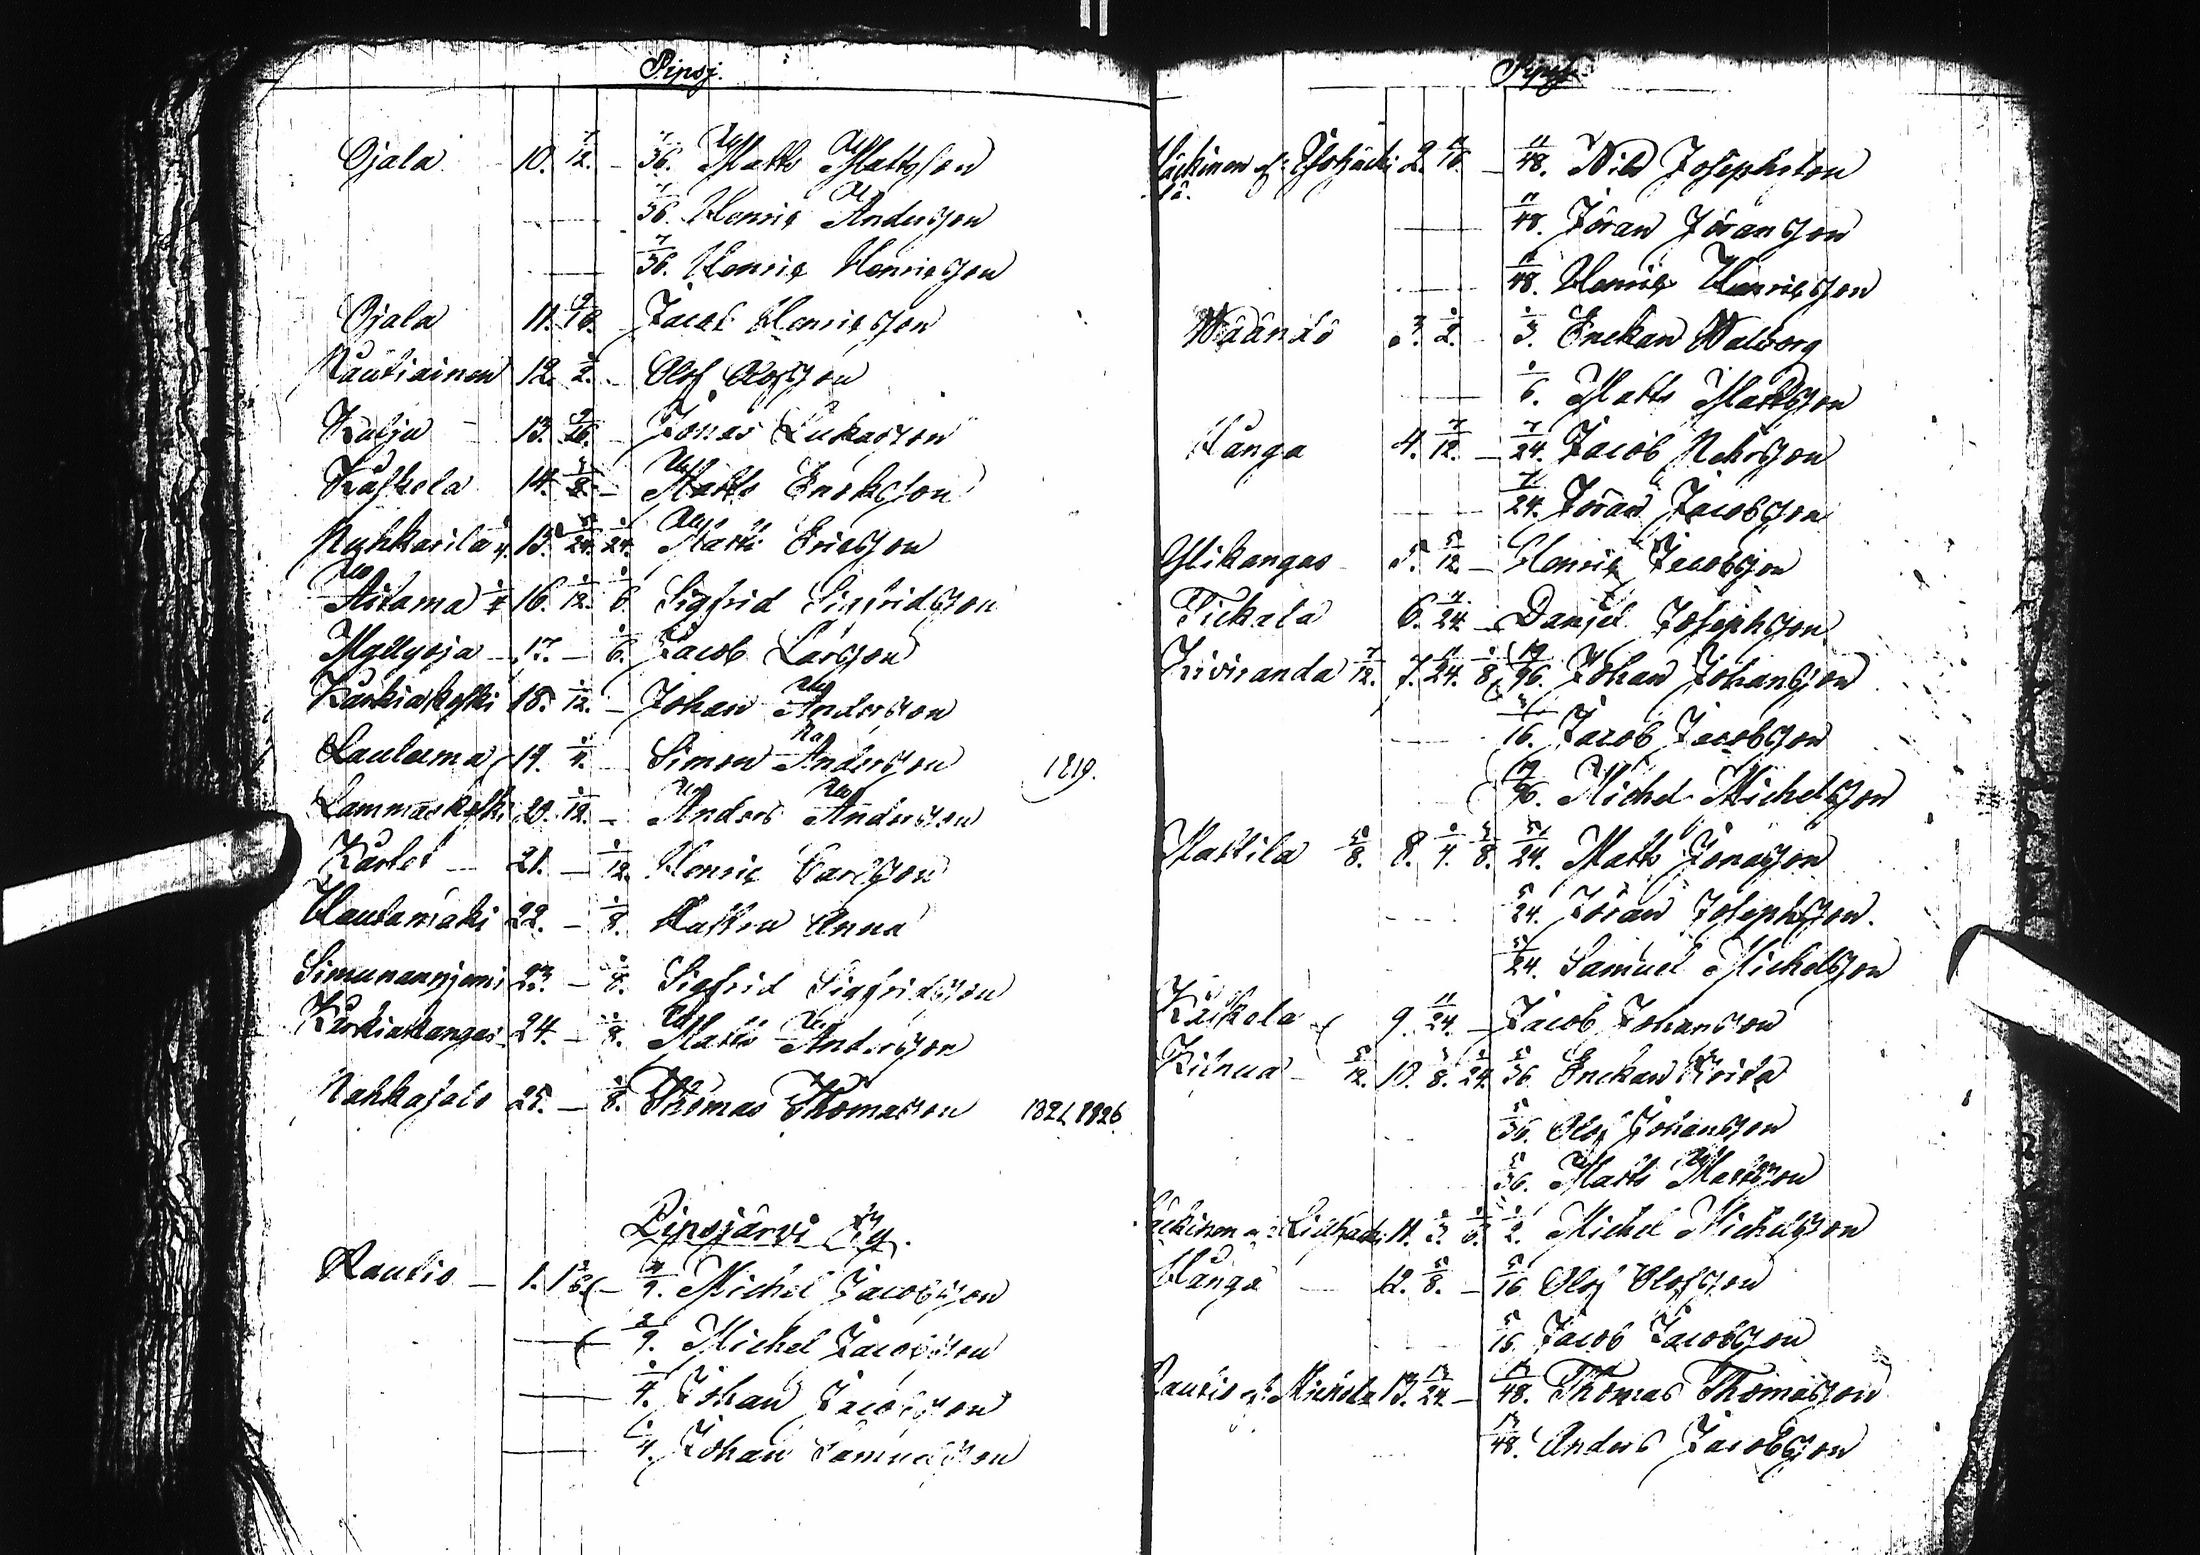 Pipsj.
Ojala 10. 7/12. – 7/36. Matts Mattsson
7/36. Henric Andersson
7/36. Henric Henricsson
Ojala 11. Jacob Henricsson
Rautiainen 12. 1/2. – Olof Olofsson
Kalja – 13. – Jonas Lukasson
Käskela 14. – Matts Ericksson
15. 5/24. 1/24. Matts Ericsson
Aitama 16. 1/12. 1/6. Sigfrid Sigfridsson
Myllyoja – 17. – 1/6. Jacob Larsson
Kurkiakoski 18. 1/12. – Johan Andersson
Lauluma 19. 1/4. Simon Andersson 1819.
Lammaskoski 20. 1/12. – Anders Andersson
21. – 1/12. Henric Carlsson
Hautamäki 22. – 1/8. Anna
Simunanniemi 23. – 1/8. Sigfrid Sigfridsson
Kurkiakangas 24. – 1/8. Matts Andersson
Nahkasalo 25. – 1/8. Thomas Thomasson 1821 1826
Pipsjärvi By.
Rautio – 1. Michel Jacobsson
2/9. Michel Jacobsson
1/4. Johan Jacobsson
1/4. Johan Samuelsson
Pipsj.
2. 11/16. – 11/48. Nils Josephsson
11/48. Jöran Jöransson
11/48. Henric Henricsson
Wäändö 3. 1/2. – 1/3. Enckan Walborg
1/6. Matts Mattsson
Kånga 4. 7/12. – 7/24. Jacob Nilsson
7/24. Jöran Jacobsson
Ylikangas 5. 5/12. – Henric Jacobsson
Tickala 6. 7/24. – Daniel Josephsson
Kiviranda 7/12. 7. 11/24. 1/8. 19/96. Johan Johansson
3/16. Jacob Jacobsson
19/96. Michel Michelsson
Mattila 5/8. 8. 1/4. 3/8. 5/24. Matts Jonasson
5/24. Jöran Josephsson.
5/24. Samuel Michelsson
Käskela 9. 11/24. – Jacob Johansson
Kilnua – 5/12. 10. 3/8. 1/24. 5/36. Enckan Brita
5/36. Olof Johansson
5/36. Matts Mattsson
11. 1/3. 1/6. 1/2. Michel Michelsson
Kånga – 12. 5/8. – 5/16. Olof Olofsson
5/16. Jacob Jacobsson
Rautio 13. 13/24. – 13/48. Thomas Thomasson
13/48. Anders Jacobsson